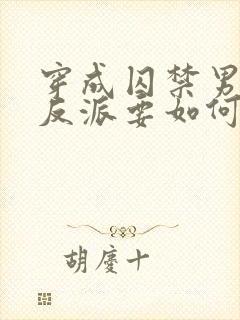 穿成囚禁男
反派要如何
胡庆十